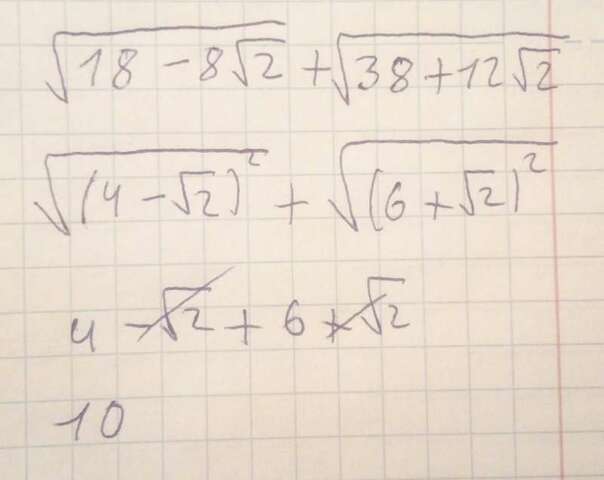 √(18 - 8√2) + √(38 + 12√2)
√((4 - √2)²) + √((6 + √2)²)
4 - √2 + 6 + √2
10